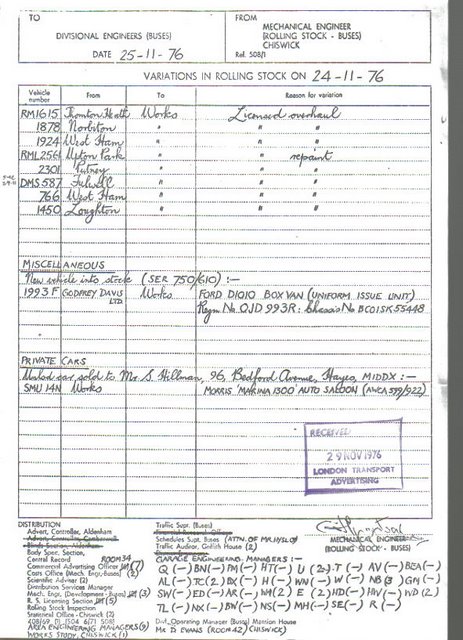 TO
DIVISIONAL ENGINEERS (BUSES)
DATE 25-11-76
FROM
MECHANICAL ENGINEER
(ROLLING STOCK - BUSES)
CHISWICK
Ref. 508/1
VARIATIONS IN ROLLING STOCK ON 24-11-76
Vehicle number From To Reason for variation
RM1615 Thornton Heath Works Licensed overhaul
1878 Norbiton " " "
1924 West Ham " " "
RML2561 Upton Park " " repaint
2301 Putney " " "
DMS 587 Fulwell " " "
766 West Ham " " "
1450 Loughton " " "
MISCELLANEOUS
New vehicle into stock (SER 750/610) :-
1993 F GODFREY DAVIS LTD. Works FORD D1010 BOX VAN (UNIFORM ISSUE UNIT)
Regn No. OJD 993R: Chassis No BC01SK55448
PRIVATE CARS
car sold to Mr. S. Hillman, 96, Bedford Avenue, Hayes, MIDDX :-
SMU 14N Works MORRIS 'MARINA 1300' AUTO SALOON (AWCA 599/922)
RECEIVED
29 NOV 1976
LONDON TRANSPORT
ADVERTISING
MECHANICAL ENGINEER
(ROLLING STOCK - BUSES)
DISTRIBUTION
Advert. Controller, Aldenham
Body Spec. Section,
Central Record ROOM 34
Commercial Advertising Officer (7)
Costs Office (Mech. Eng.-Buses) (2)
Scientific Adviser (2)
Distribution Services Manager
Mech. Engr. (Development - Buses) (3)
R. S. Licensing Section (5)
Rolling Stock Inspection
Statistical Office - Chiswick (2)
AREA ENGINEERING MANAGERS (9)
WORKS STUDY, CHISWICK (1)
Traffic Supt. (Buses)
Schedules Supt. Buses (ATTN. OF MR. HYSLO)
Traffic Auditor, Griffith House (2)
GARAGE ENGINEERING MANAGERS :-
Q (-) BN (-) PM (-) HT (-) U (2) T (-) AV (-) BEA (-)
AL (-) TC (2) BX (-) H (-) WN (-) W (-) NB (3) GM (-)
SW (-) ED (-) AR (-) WH (2) E (2) HD (-) HW (-) WD (2)
TL (-) NX (-) BW (-) NS (-) MH (-) SE (-) R (-)
Divl. Operating Manager (Buses) Mansion House
Mr. D EVANS (ROOM 42) CHISWICK)